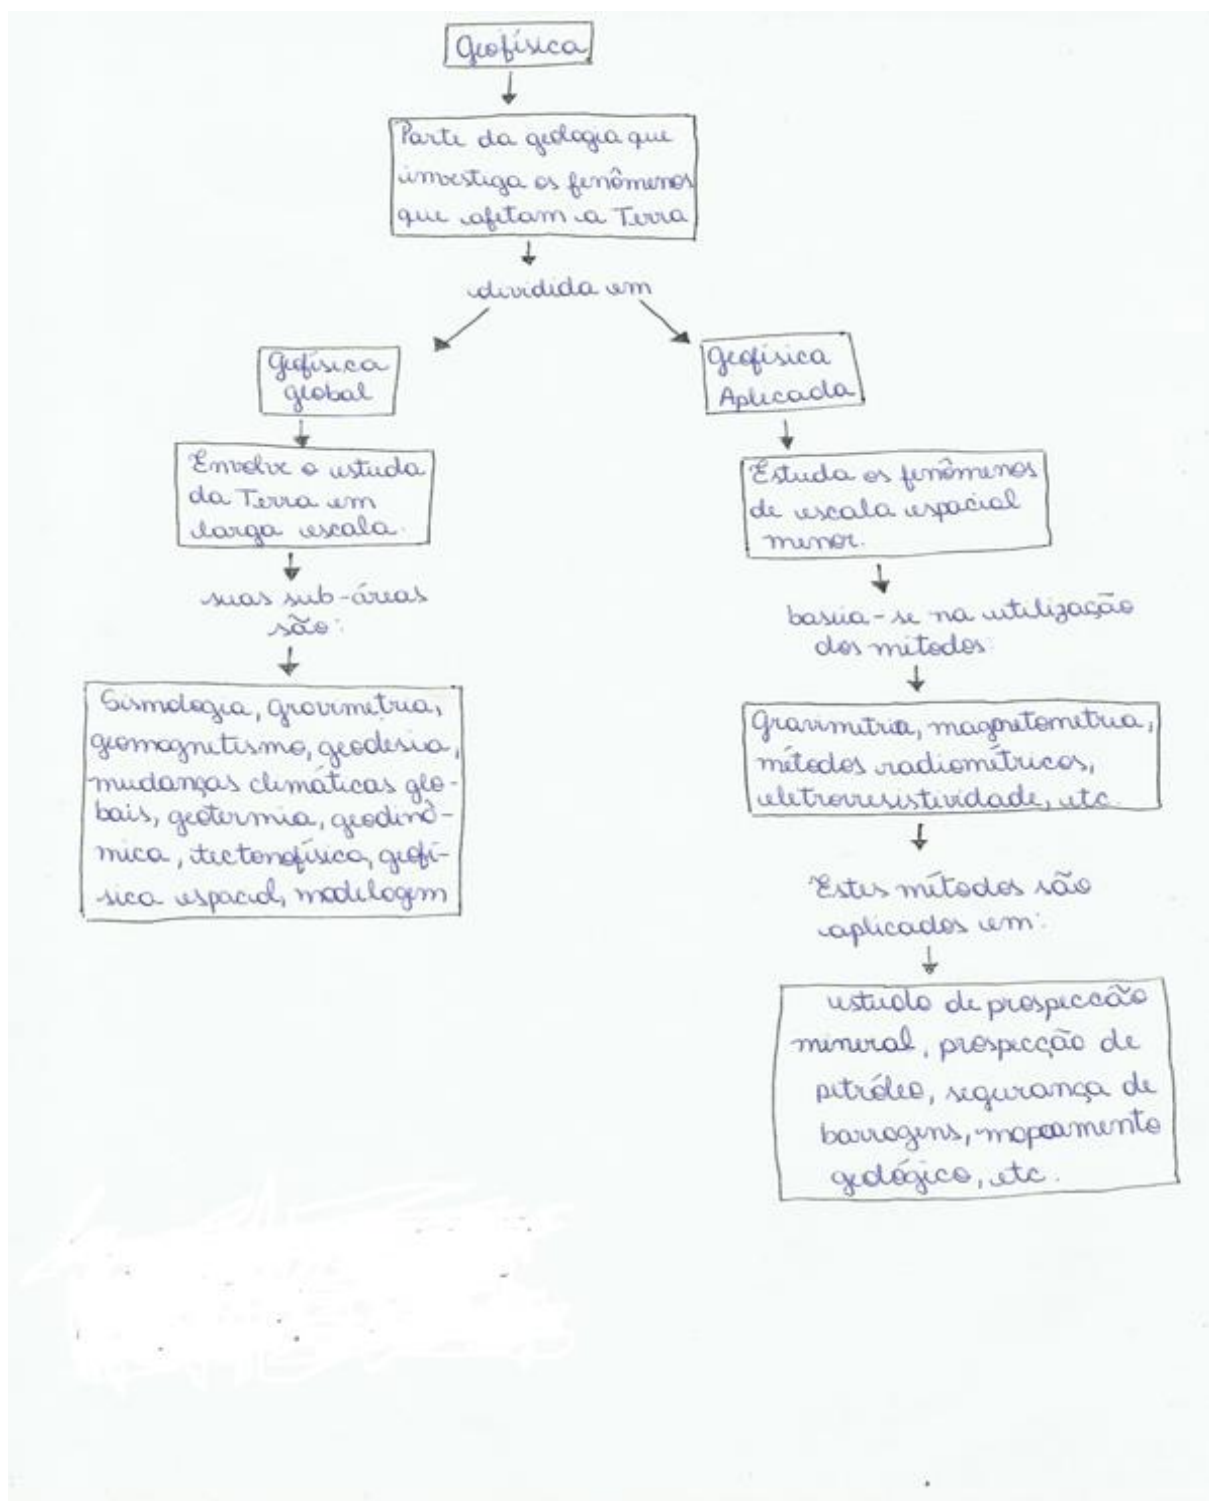 Geofísica
Parte da geologia que
investiga os fenômenos
que afetam a Terra
dividida em
Geofísica
global
Envolve o estuda
da Terra em
larga escala.
suas sub-áreas
são:
Sismologia, gravimetria,
geomagnetismo, geodesia,
mudanças climáticas glo-
bais, geotermia, geodinâ-
mica, tectonofísica, geofí-
sica espacial, modelagem
Geofísica
Aplicada
Estuda os fenômenos
de escala espacial
menor.
baseia-se na utilização
dos métodos:
Gravimetria, magnetometria,
métodos radiométricos,
eletrorresistividade, etc.
Estes métodos são
aplicados em:
estudo de prospeccão
mineral, prospecção de
petróleo, segurança de
barragens, mapeamento
geológico, etc.